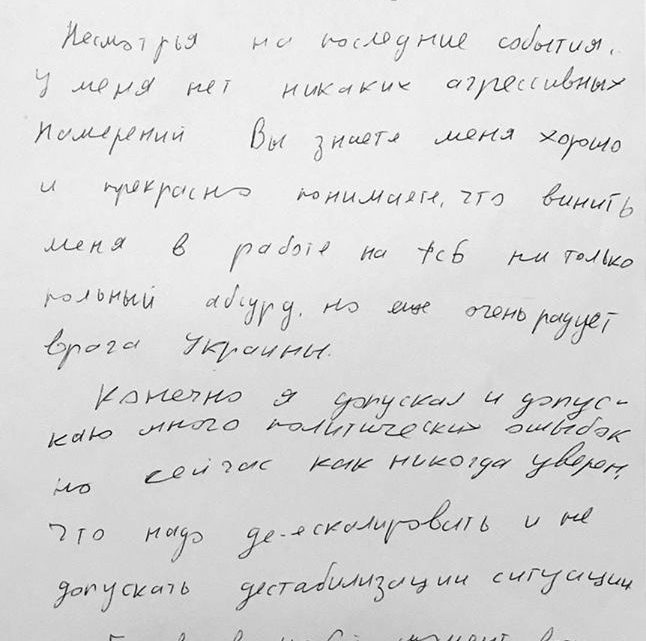 Несмотрья на последние события,
у меня нет никаких агрессивных
намерений Вы знаете меня хорошо
и прекрасно понимаете, что винить
меня в работе на ФСБ ни только
польный абсурд, но еще очень радует
врага Украины.
Конечно я допускал и допус-
каю много политических ошыбок
но сейчас как никогда уверен,
что надо де-ескалировать и не
допускать дестабилизации ситуации